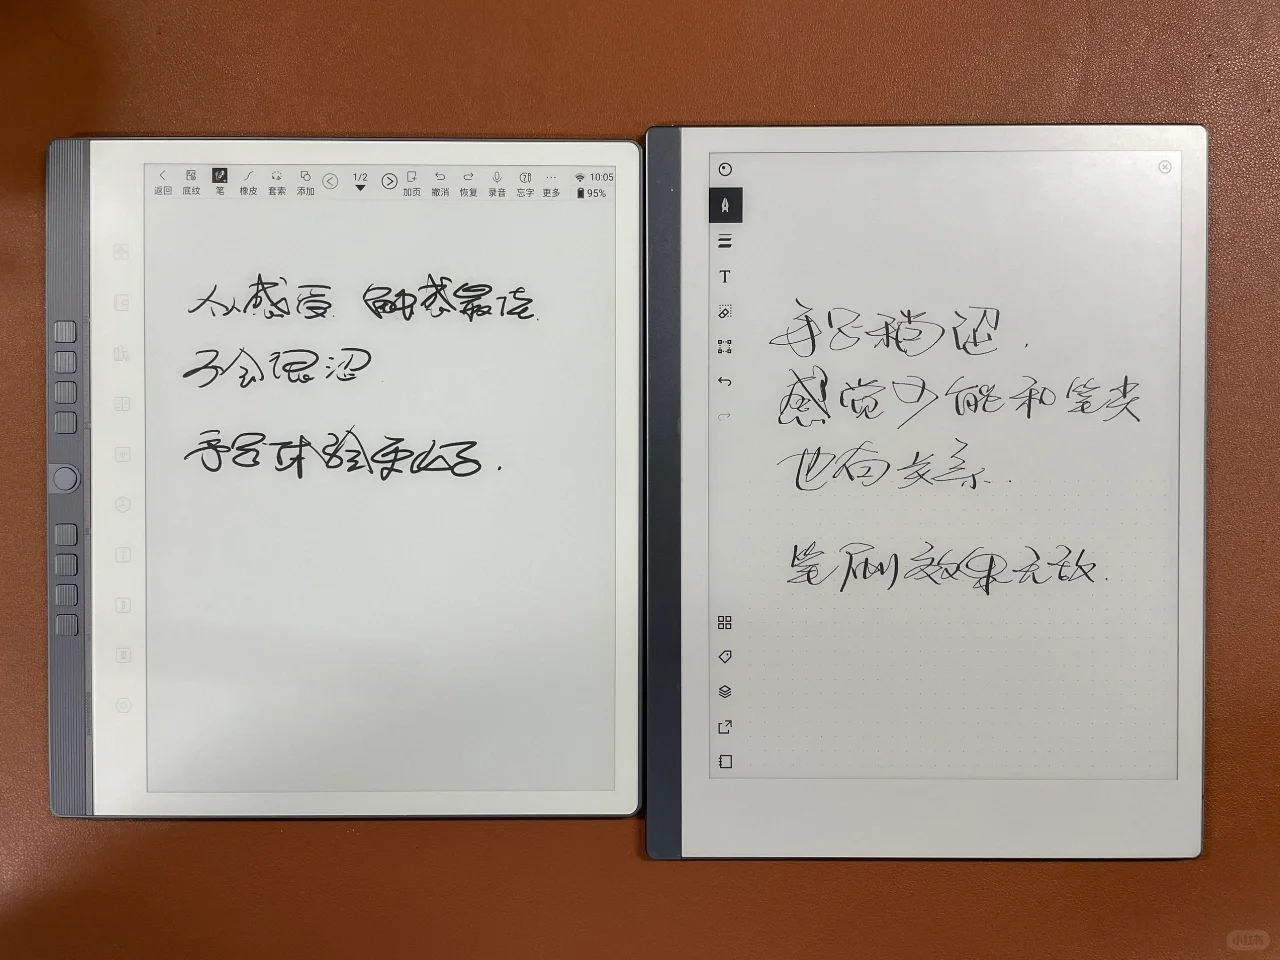 返回 底纹 笔 橡皮 套索 添加 1/2 加页 撤消 恢复 录音 忘字 更多 10:05 95%
个人感受 触感最佳
不会很涩
手写体验更好.
T
手写稍涩.
感觉可能和笔尖
也有关系.
笔刷效果无敌.
小红书